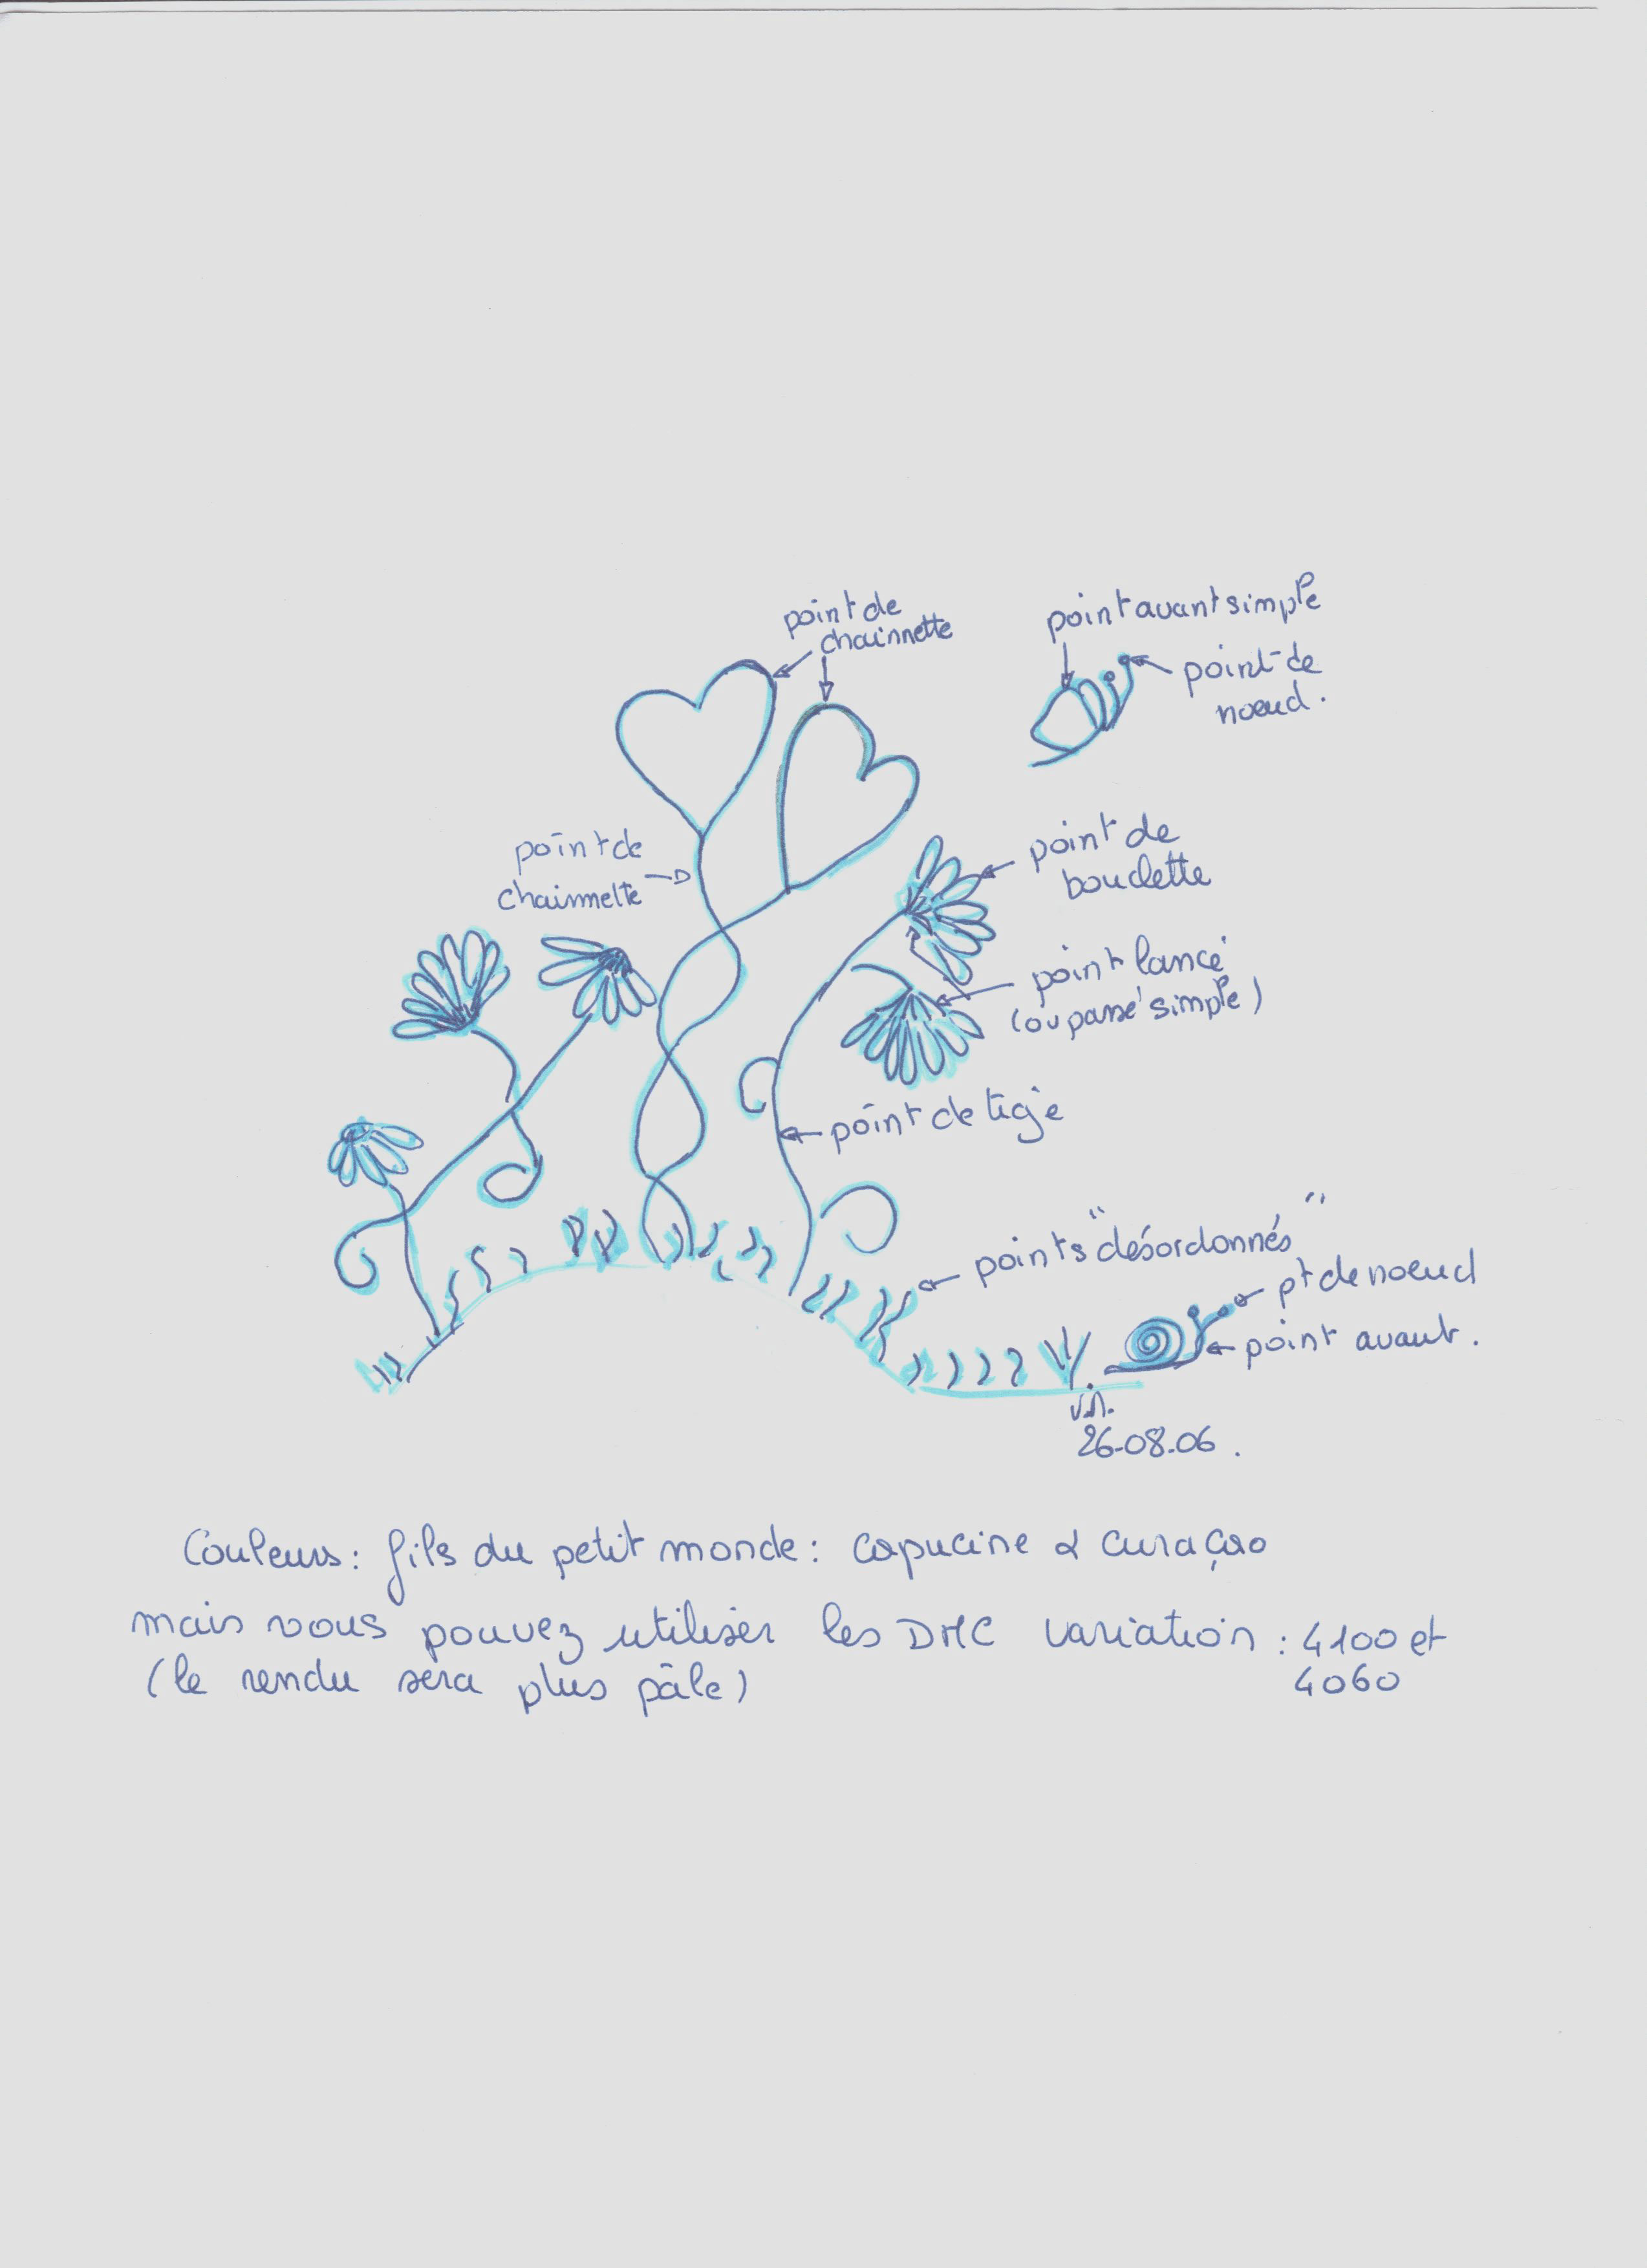 point de
chainnette
point avant simple
point de
noeud.
point de
chainnette
point de
bouclette
point lancé
(ou passé simple)
point de tige
points "désordonnés"
pt de noeud
point avant.
26-08-06.
Couleurs: fils du petit monde: capucine & curaçao
mais vous pouvez utiliser les DMC variation: 4100 et
4060
(le rendu sera plus pâle)